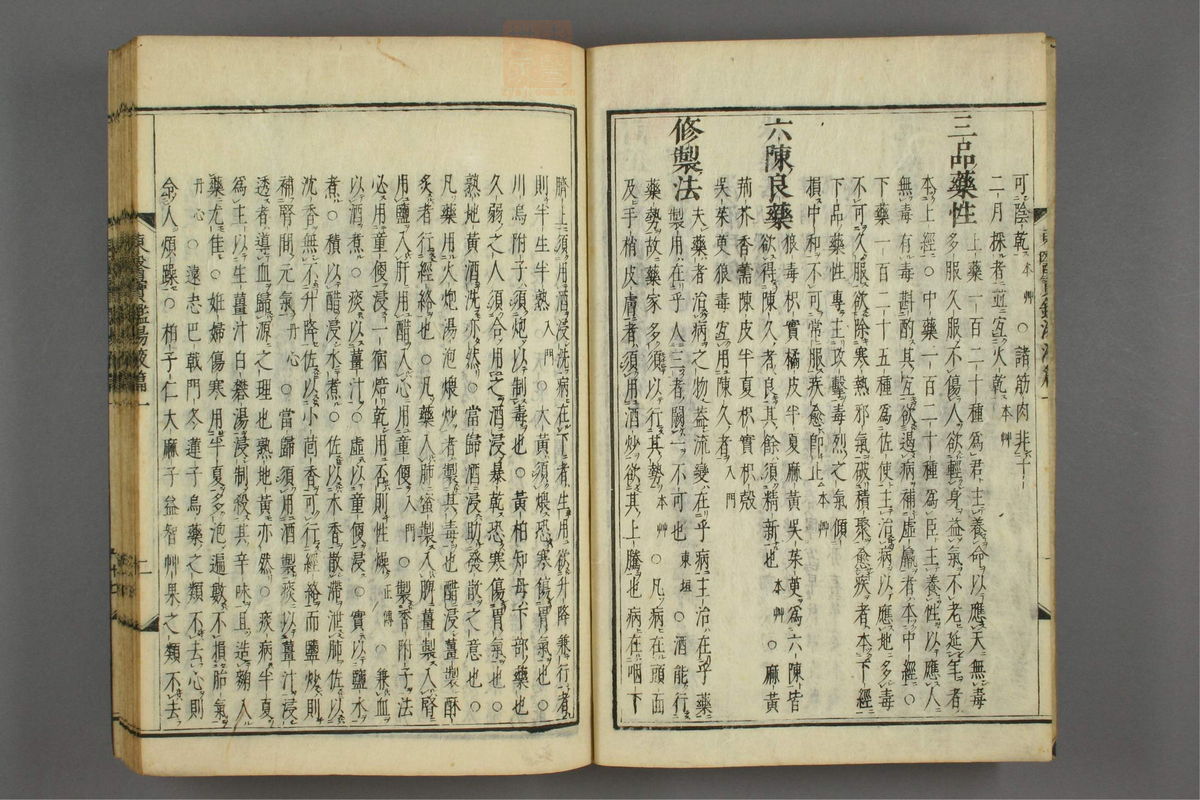 可陰乾本艸○諸筋肉非十二
二月採者並宜火乾本艸
三品藥性
上藥一百二十種爲君主養命以應天無毒
多服久服不傷人欲輕身益氣不老延年者
本上經○中藥一百二十種爲臣主養性以應人
無毒有毒斟酌其宜欲遏病補虛羸者本中經○
下藥一百二十五種爲佐使主治病以應地多毒
不可久服欲除寒熱邪氣破積聚愈疾者本下經
下品藥性專主攻擊毒烈之氣傾
損中和不可常服疾愈卽止本艸
六陳良藥
狼毒枳實橘皮半夏麻黃吳茱萸爲六陳皆
欲得陳久者良其餘須精新也本艸○麻黃
荊芥香薷陳皮半夏枳實枳殼
吳茱萸狼毒宜用陳久者入門
修製法
夫藥者治病之物蓋流變在乎病主治在乎藥
製用在乎人三者闕一不可也東垣○酒能行
藥勢故藥家多須以行其勢本艸○凡病在頭面
及手梢皮膚者須用酒炒欲其上騰也病在咽下
臍上須用酒浸洗病在下者生用欲升降兼行者
則半生半熟入門○大黃須煨恐寒傷胃氣也○
川烏附子須炮以制毒也○黃柏知母下部藥也
久弱之人須合用之酒浸暴乾恐寒傷胃氣也○
熟地黃酒洗亦然○當歸酒浸助發散之意也○
凡藥用火炮湯泡煨炒者製其毒也醋浸薑製酥
炙者行經絡也○凡藥入肺蜜製入脾薑製入腎
用鹽入肝用醋入心用童便入門○製香附子法
必用童便浸一宿焙乾用否則性燥正傳○兼血
以酒煮○痰以薑汁○虛以童便浸○實以鹽水
煮○積以醋浸水煮○佐以木香散滯泄肺佐以
沈香無不升降佐以小茴香可行經絡而鹽炒則
補腎間元氣丹心○當歸須用酒製痰以薑汁浸
透者導血歸源之理也熟地黃亦然○痰病半夏
爲主以生薑汁白礬湯浸制殺其辛味且造麴入
藥尤佳○姙婦傷寒用半夏多泡遍數不損胎氣
丹心○遠志巴戟門冬蓮子烏藥之類不去心則
令人煩躁○柏子仁大麻子益智艸果之類不去
東醫寶鑑湯液篇一